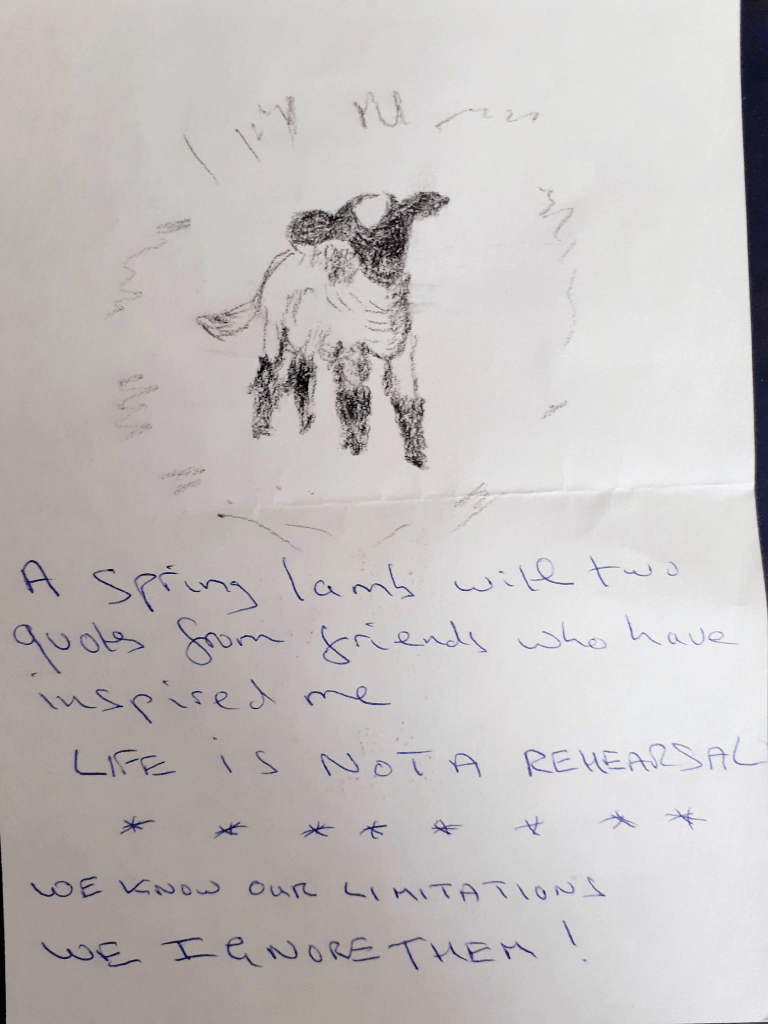 A spring lamb with two
quotes from friends who have
inspired me
LIFE iS NOT A REHEARSAL
* * * * * * * *
WE KNOW OUR LIMITATIONS
WE IGNORE THEM!